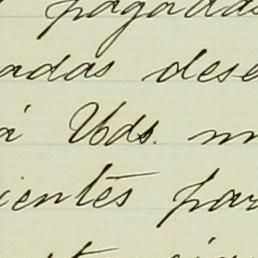 pagadas
adas dese
á Vds. m
ientes par